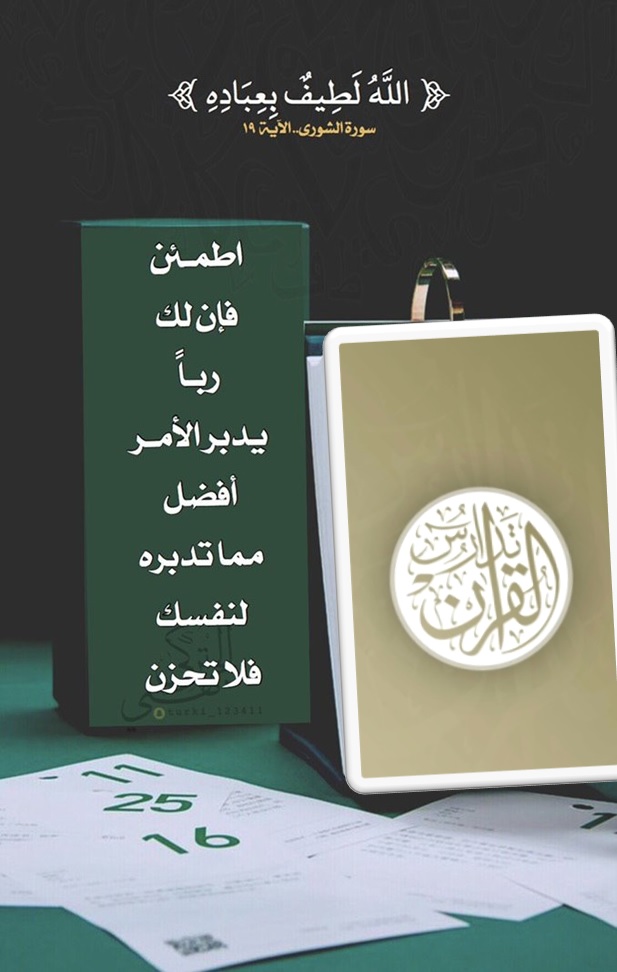 اللَّهُ لَطِيفٌ بِعِبَادِهِ
سورة الشورى..الآية ١٩
اطمـئن
فإن لك
ربـاً
يـدبر الأمـر
أفضل
مما تدبره
لنفسك
فلا تحزن
turki_123411
تدارس
القرآن
11
25
16